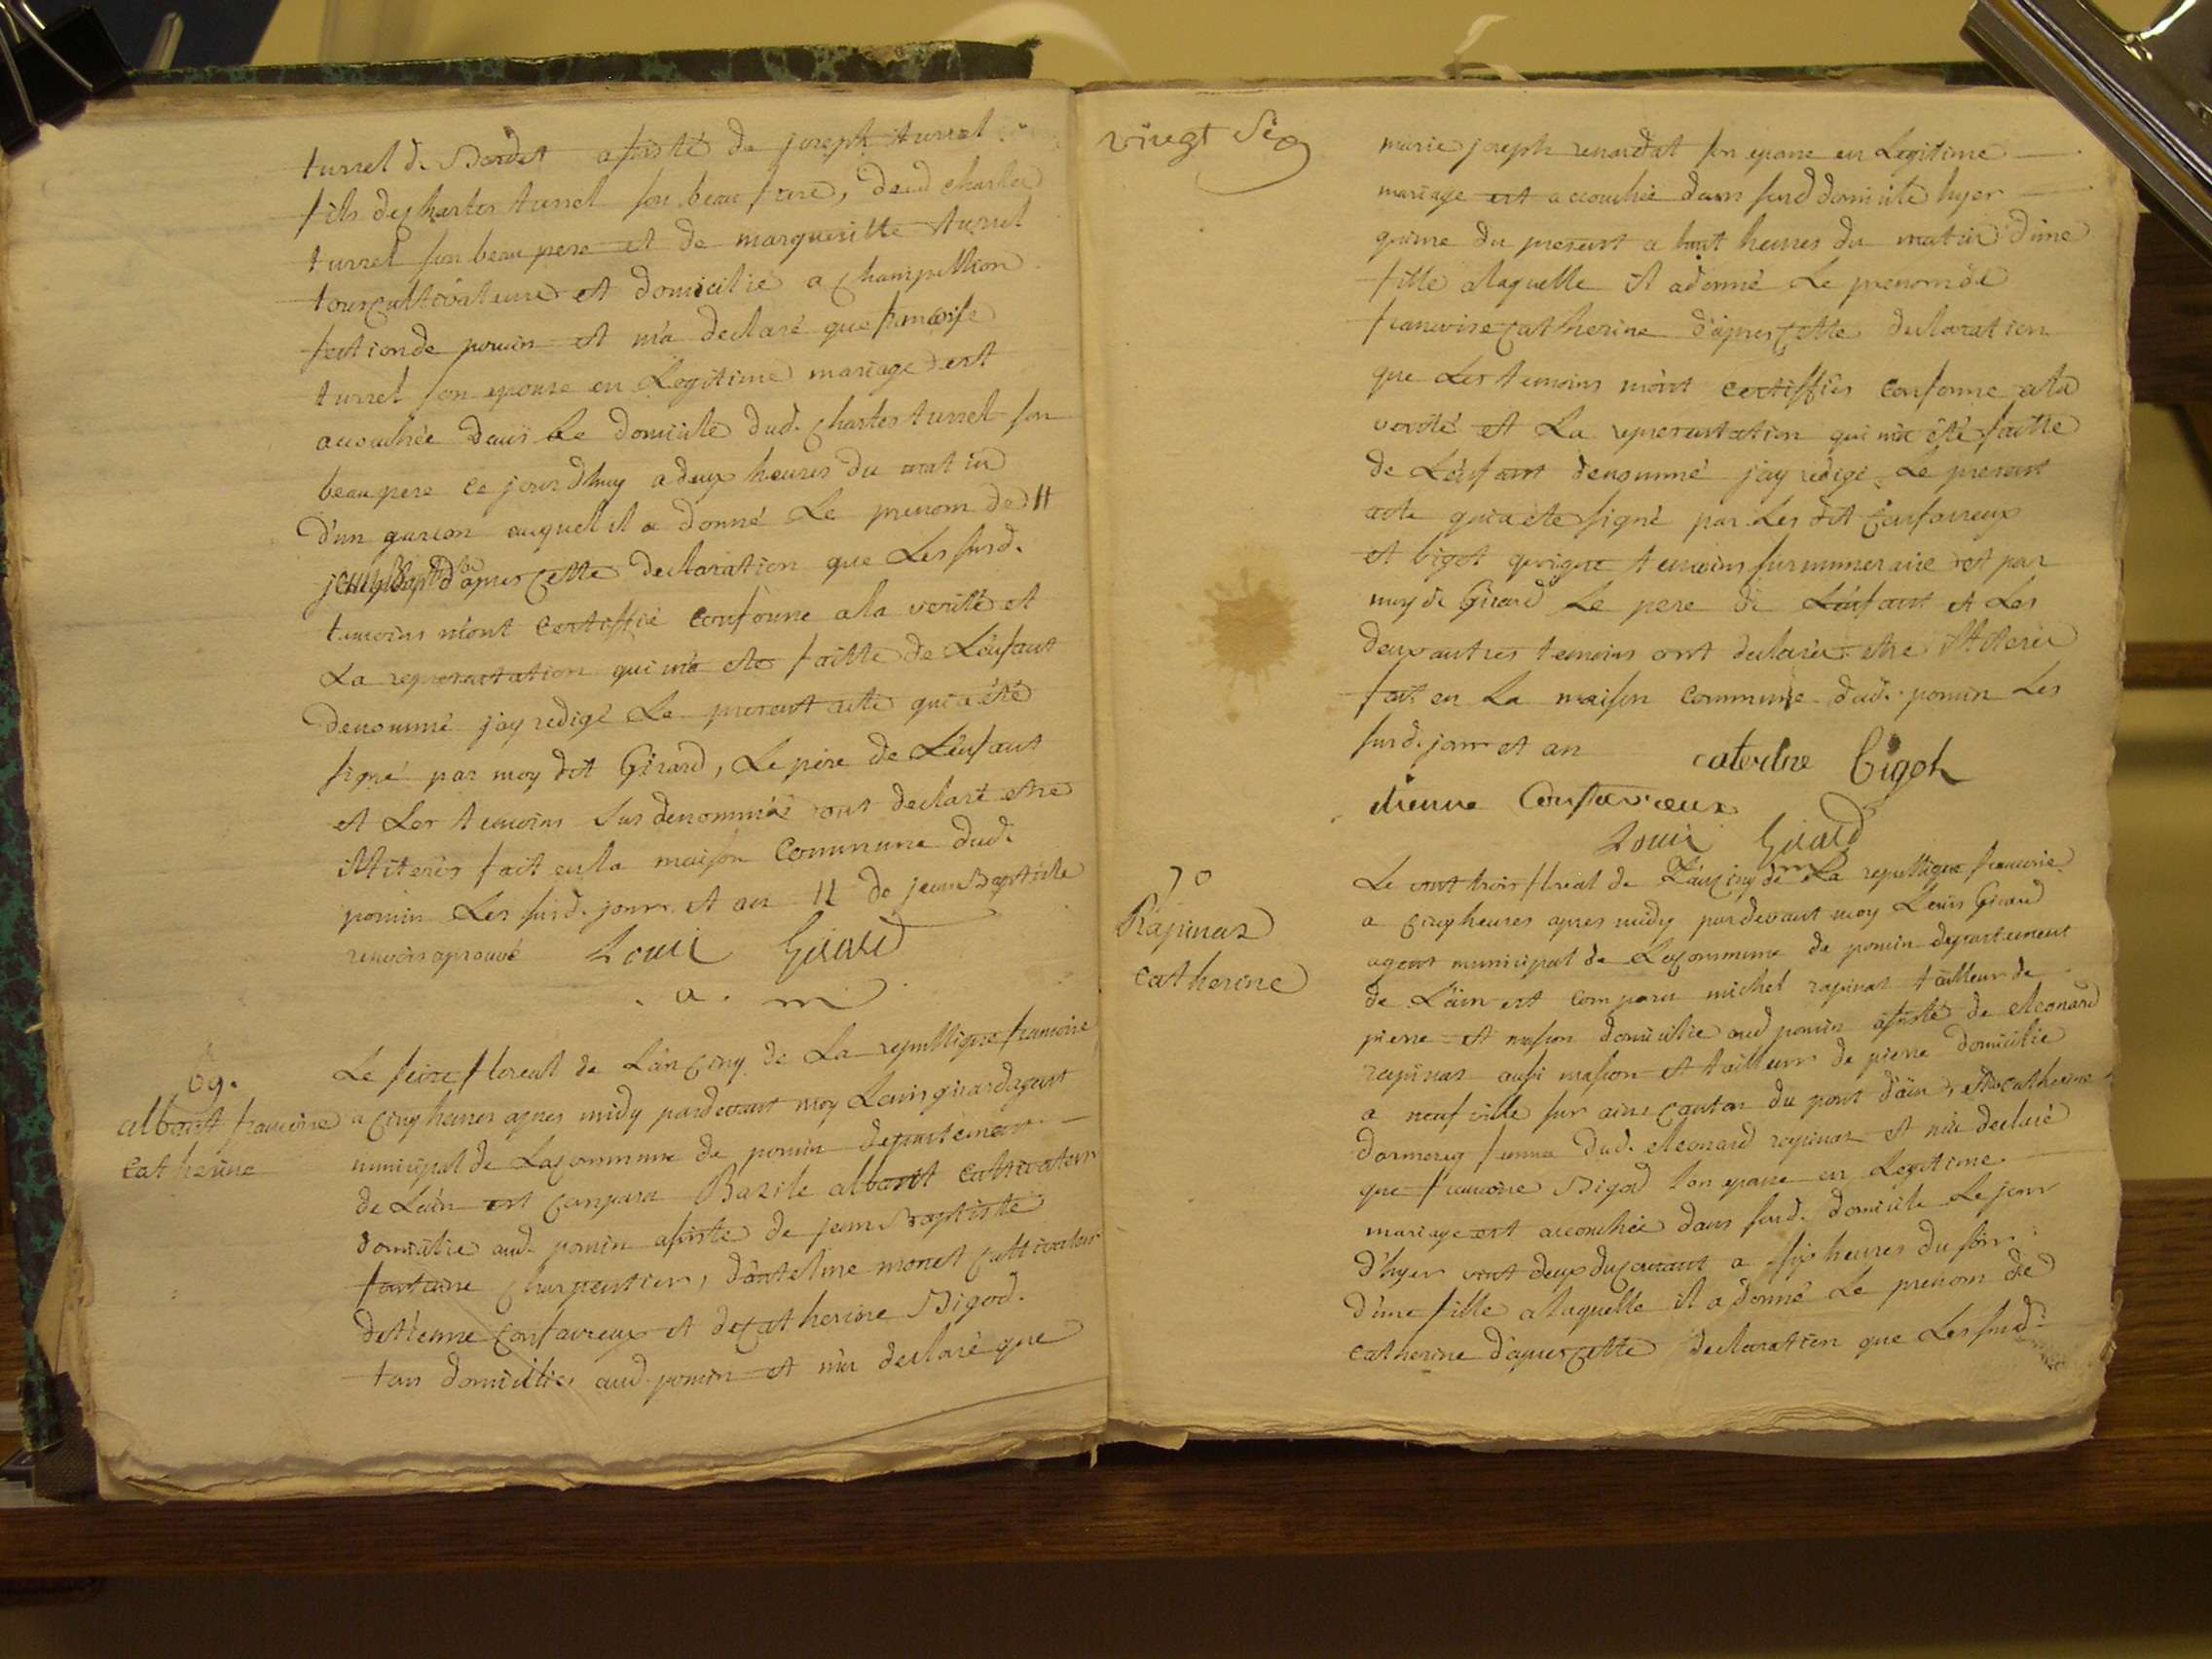 turrel de Bardet assisté de joseph turrel
fils de charles turrel son beau frere, dud charles
turrel son beau pere et de margueritte turrel
tous cultivateurs et domicilié a champillion
section de poncin et m'a declaré que francoise
turrel son epouse en Legitime mariage est
accouchée dans Le domicile dud. charles turrel son
beau pere ce jourd'huy a deux heures du matin
d'un garcon auquel il a donné Le prenom de
jean Bapt d'apres cette declaration que Les susd.
temoins m'ont certiffié conforme a la verité et
La representation qui m'a ete faitte de L'enfant
denommé j'ay redigé Le present acte qui a été
signé par moy dit Girard, Le pere de L'enfant
et Les temoins sus denommés ont declaré etre
illiterés fait en la maison commune dud.
poncin Les susd. jour et an de jean Baptiste
renvois aprouvé Louis Girard
a. m
69.
albant francoise
catherine
Le seize floreal de L'an cinq de La republique francoise
a cinq heures apres midy pardevant moy Louis girard agent
municipal de La commune de poncin departement
de L'ain est comparu Bazile albant cultivateur
domicilié aud. poncin assisté de jean Baptiste
fontaine charpentier, d'antelme monet cultivateur
d'etienne confavreux et de catherine Bigod.
tous domiciliés aud. poncin et m'a declaré que
vingt six
marie joseph renardat son epouse en Legitime
mariage est accouchée dans susd domicile hyer
quinze du present a huit heures du matin d'une
fille a laquelle il a donné Le prenom de
francoise catherine d'apres cette declaration
que Les temoins m'ont certiffiés conforme a la
verité et La representation qui m'a été faitte
de L'enfant denommé j'ay redigé Le present
acte qui a ete signé par Les dit confavreux
et bigot temoins surnumeraire et par
moy dt Girard Le pere de L'enfant et Les
deux autres temoins ont declarés etre illiterés
fait en La maison commune dud. poncin Les
susd. jour et an caterine Bigot
etienne Confavreux
Louis Girard
70
Rapinas
catherine
Le vint trois floreal de L'an cinq de La republique francoise
a cinq heures apres midy pardevant moy Louis Girard
agent municipal de La commune de poncin departement
de L'ain est comparu michel rapinas tailleur de
pierre et masson domicilié aud poncin assisté de eleonard
rapinas aussi masson et tailleur de pierre domicilié
a neufville sur ains canton du pont d'ain, et de catherine
femme dud. eleonard rapinas et m'a declaré
que francoise Bigod son epouse en Legitime
mariage est accouchée dans susd. domicile Le jour
d'hyer vint deux du courant a six heures du soir
d'une fille a laquelle il a donné Le prenom de
catherine d'apres cette declaration que Les susd.